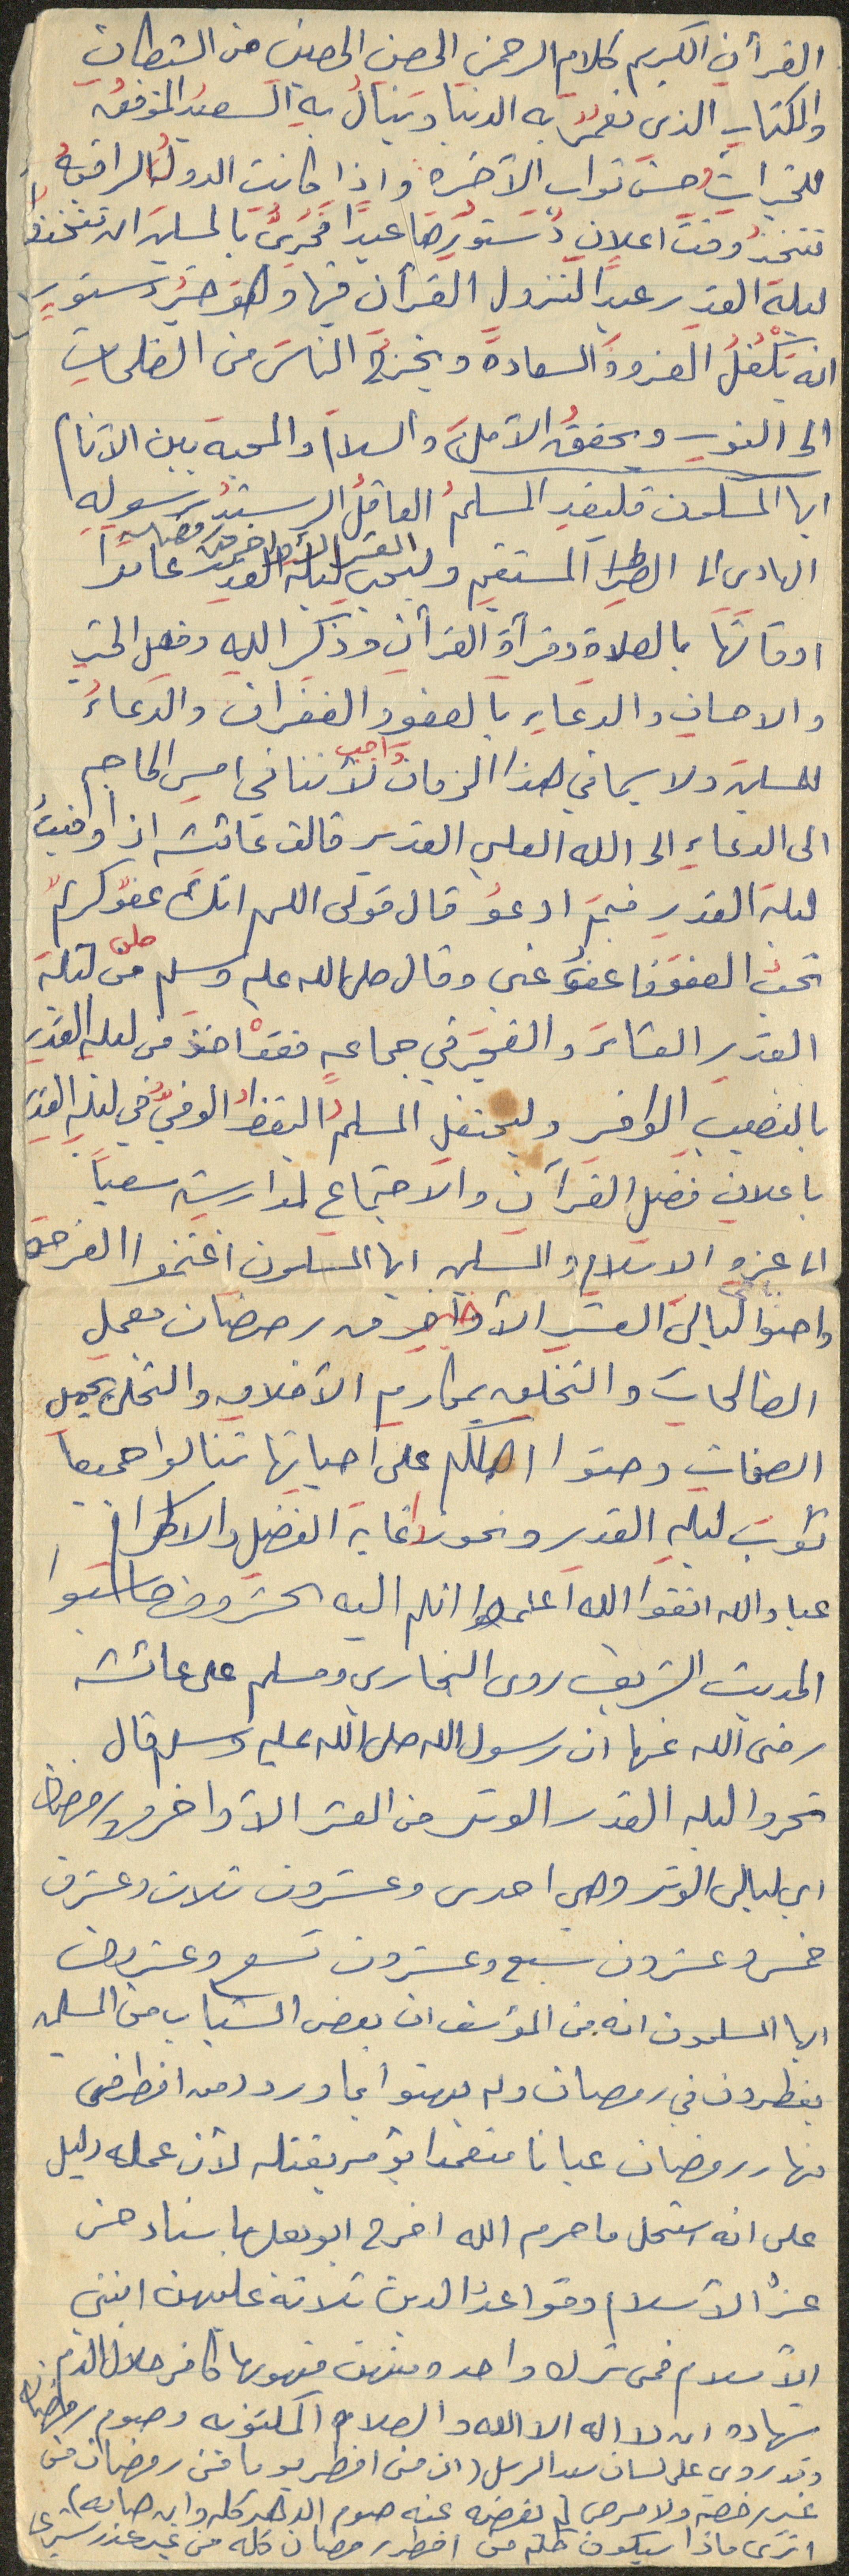 القرآن الكريم كلام الرحمن الحصن الحصين من الشيطان
والكتاب الذى نعمر به الدنيا وينال به السعيد الموفق
للخيرات حسن ثواب الآخرة واذا كانت الدول الراقية
تتخذ وقت اعلان دستورها عيدا فحرى بالمسلمين ان تتخذ
ليلة القدر عيدا لنزول القرآن فيها وهو خير دستور
انه يكفل العز والسعادة ويخرج الناس من الظلمات
الى النور ويحقق الأمن والسلام والمحبة بين الأنام
ايها المسلمون فليقتد المسلم العاقل الرشيد برسوله
العشر الأواخر من رمضان
الهادى الى الصراط المستقيم وليحى ليلة القدر عامرا
اوقاتها بالصلاة وقرآة القرآن وذكر الله وفعل الخير
والاحسان والدعاء بالعفو والغفران والدعاء
للمسلمين ولا سيما في هذا الزمان واجب لأننا في امس الحاجة
الى الدعاء الى الله العلي القدير قالت عائشه اذا وافيت
ليلة القدر فبم ادعو قال قولى اللهم انك عفو كريم
تحب العفو فاعفو عنى وقال صلى الله عليه وسلم من صلى ليلة
القدر العشاء والفجر في جماعه فقد اخذ من ليلة القدر
بالنصيب الوافر وليحتفل المسلم اليقظ الوفي في ليلة القدر
باعلان فضل القرآن والاجتماع لمدارسته سعيا
الى عز الاسلام والمسلمين ايها المسلمون اغتنموا الفرصة
واحيوا ليالى العشر الأواخر من رمضان بعمل
الصالحات والتخلق بمكارم الأخلاق والتحلى بجميل
الصفات وحثوا اهلكم على احيائها تنالوا جميعا
ثواب ليلة القدر وتحوزوا غاية الفضل والاكرام
عباد الله اتقوا الله اعلموا انكم اليه تحشرون وتحاسبوا
الحديث الشريف روى البخارى ومسلم على عائشه
رضى الله عنها ان رسول الله صلى الله عليه وسلم قال
تحروا ليلة القدر الوتر من العشر الأواخر من رمضان
اي ليالى الوتر وهي احدى وعشرون ثلاث وعشرون
خمس وعشرون سبع وعشرون تسع وعشرون
ايها المسلمون انه من المؤسف ان بعض الشباب من المسلمين
يفطرون في رمضان ولم يهتوا بما ورد من افطر فى
نهار رمضان عيانا متعمدا يؤمر بقتله لأن عمله دليل
على انه استحل ما حرم الله اخرج ابو يعلى باسناد حسن
عز الاسلام وقواعد الدين ثلاثة عليهن ابتنى
الأسلام فمن ترك واحده منهن فهو بها كافر حلال الدم
شهادة ان لا اله الا الله والصلاة المكتوبه وصوم رمضان
وقد روى على لسان سيد الرسل (ان من افطر يوما من رمضان من
غير رخصة ولا مرض لم يقضه عنه صوم الدهر كله وان صامه)
اترى ماذا سيكون حكم من افطر رمضان كله من غير عذر شرعى